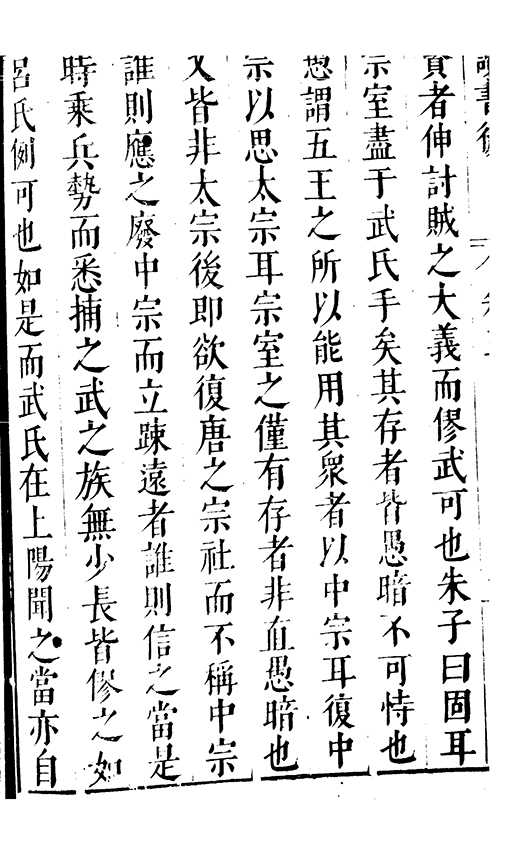 讀書後
賢者伸討賊之大義而僇武可也朱子曰固耳
宗室盡于武氏手矣其存者皆愚暗不可恃也
愚謂五王之所以能用其衆者以中宗耳復中
宗以思太宗耳宗室之僅有存者非直愚暗也
又皆非太宗後即欲復唐之宗社而不稱中宗
誰則應之廢中宗而立踈遠者誰則信之當是
時乘兵勢而悉捕之武之族無少長皆僇之如
呂氏例可也如是而武氏在上陽聞之當亦自